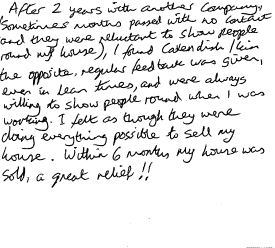 After 2 years with another company,
(Sometimes months passed with no contact
and they were reluctant to show people
round my house), I found Cavendish Ikin
the opposite, regular feedback was given,
even in lean times, and were always
willing to show people round when I was
working. I felt as though they were
doing everything possible to sell my
house. Within 6 months my house was
sold, a great relief!!